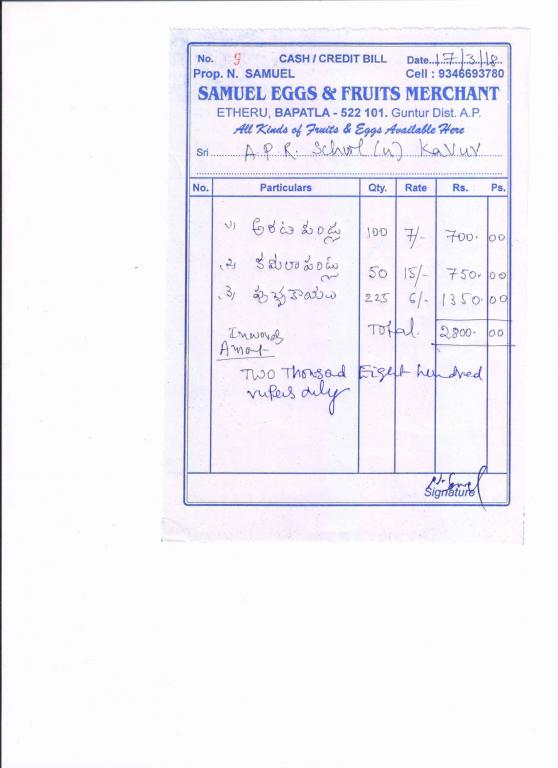 No. 9 CASH / CREDIT BILL Date 17/3/18
Prop. N. SAMUEL Cell : 9346693780
SAMUEL EGGS & FRUITS MERCHANT
ETHERU, BAPATLA - 522 101. Guntur Dist. A.P.
All Kinds of Fruits & Eggs Available Here
Sri A.P.R. School (U) Kavur
No. Particulars Qty. Rate Rs. Ps.
1) అరటి పండ్లు 100 7/- 700. 00
2) కమలా పండ్లు 50 15/- 750. 00
3) పుచ్చకాయలు 225 6/- 1350. 00
Inwords Total. 2800. 00
Amount
Two Thousad Eight hundred
rupees only
Signature